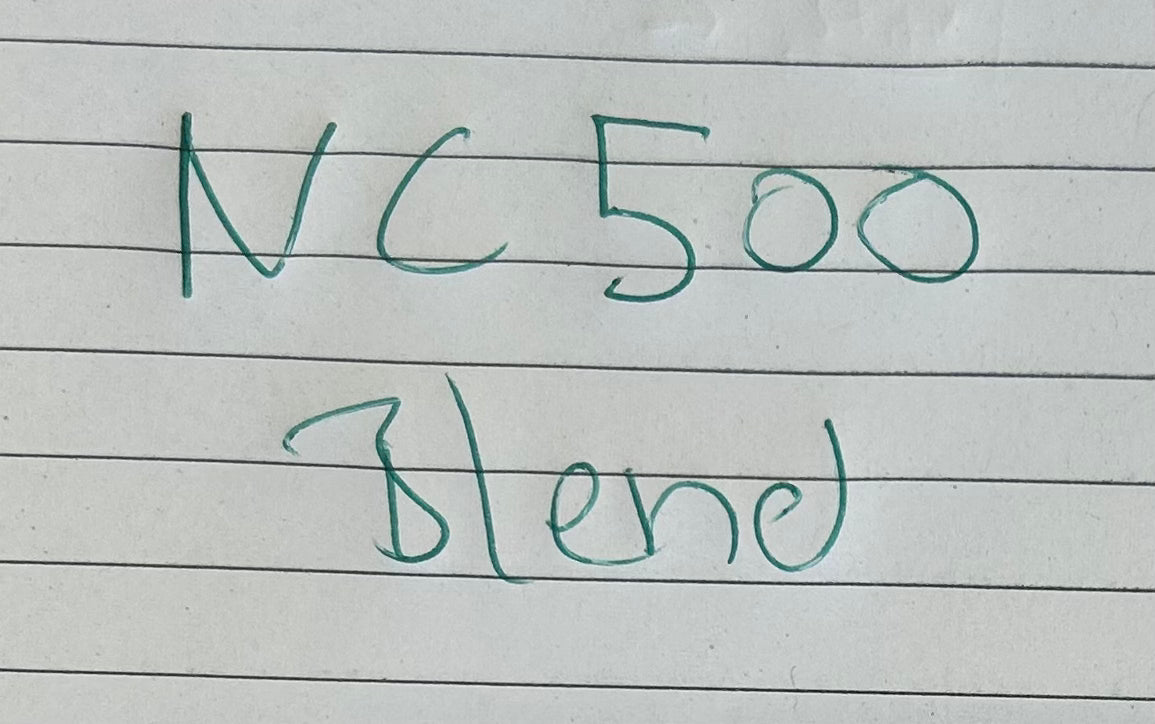 NC 500
Blend